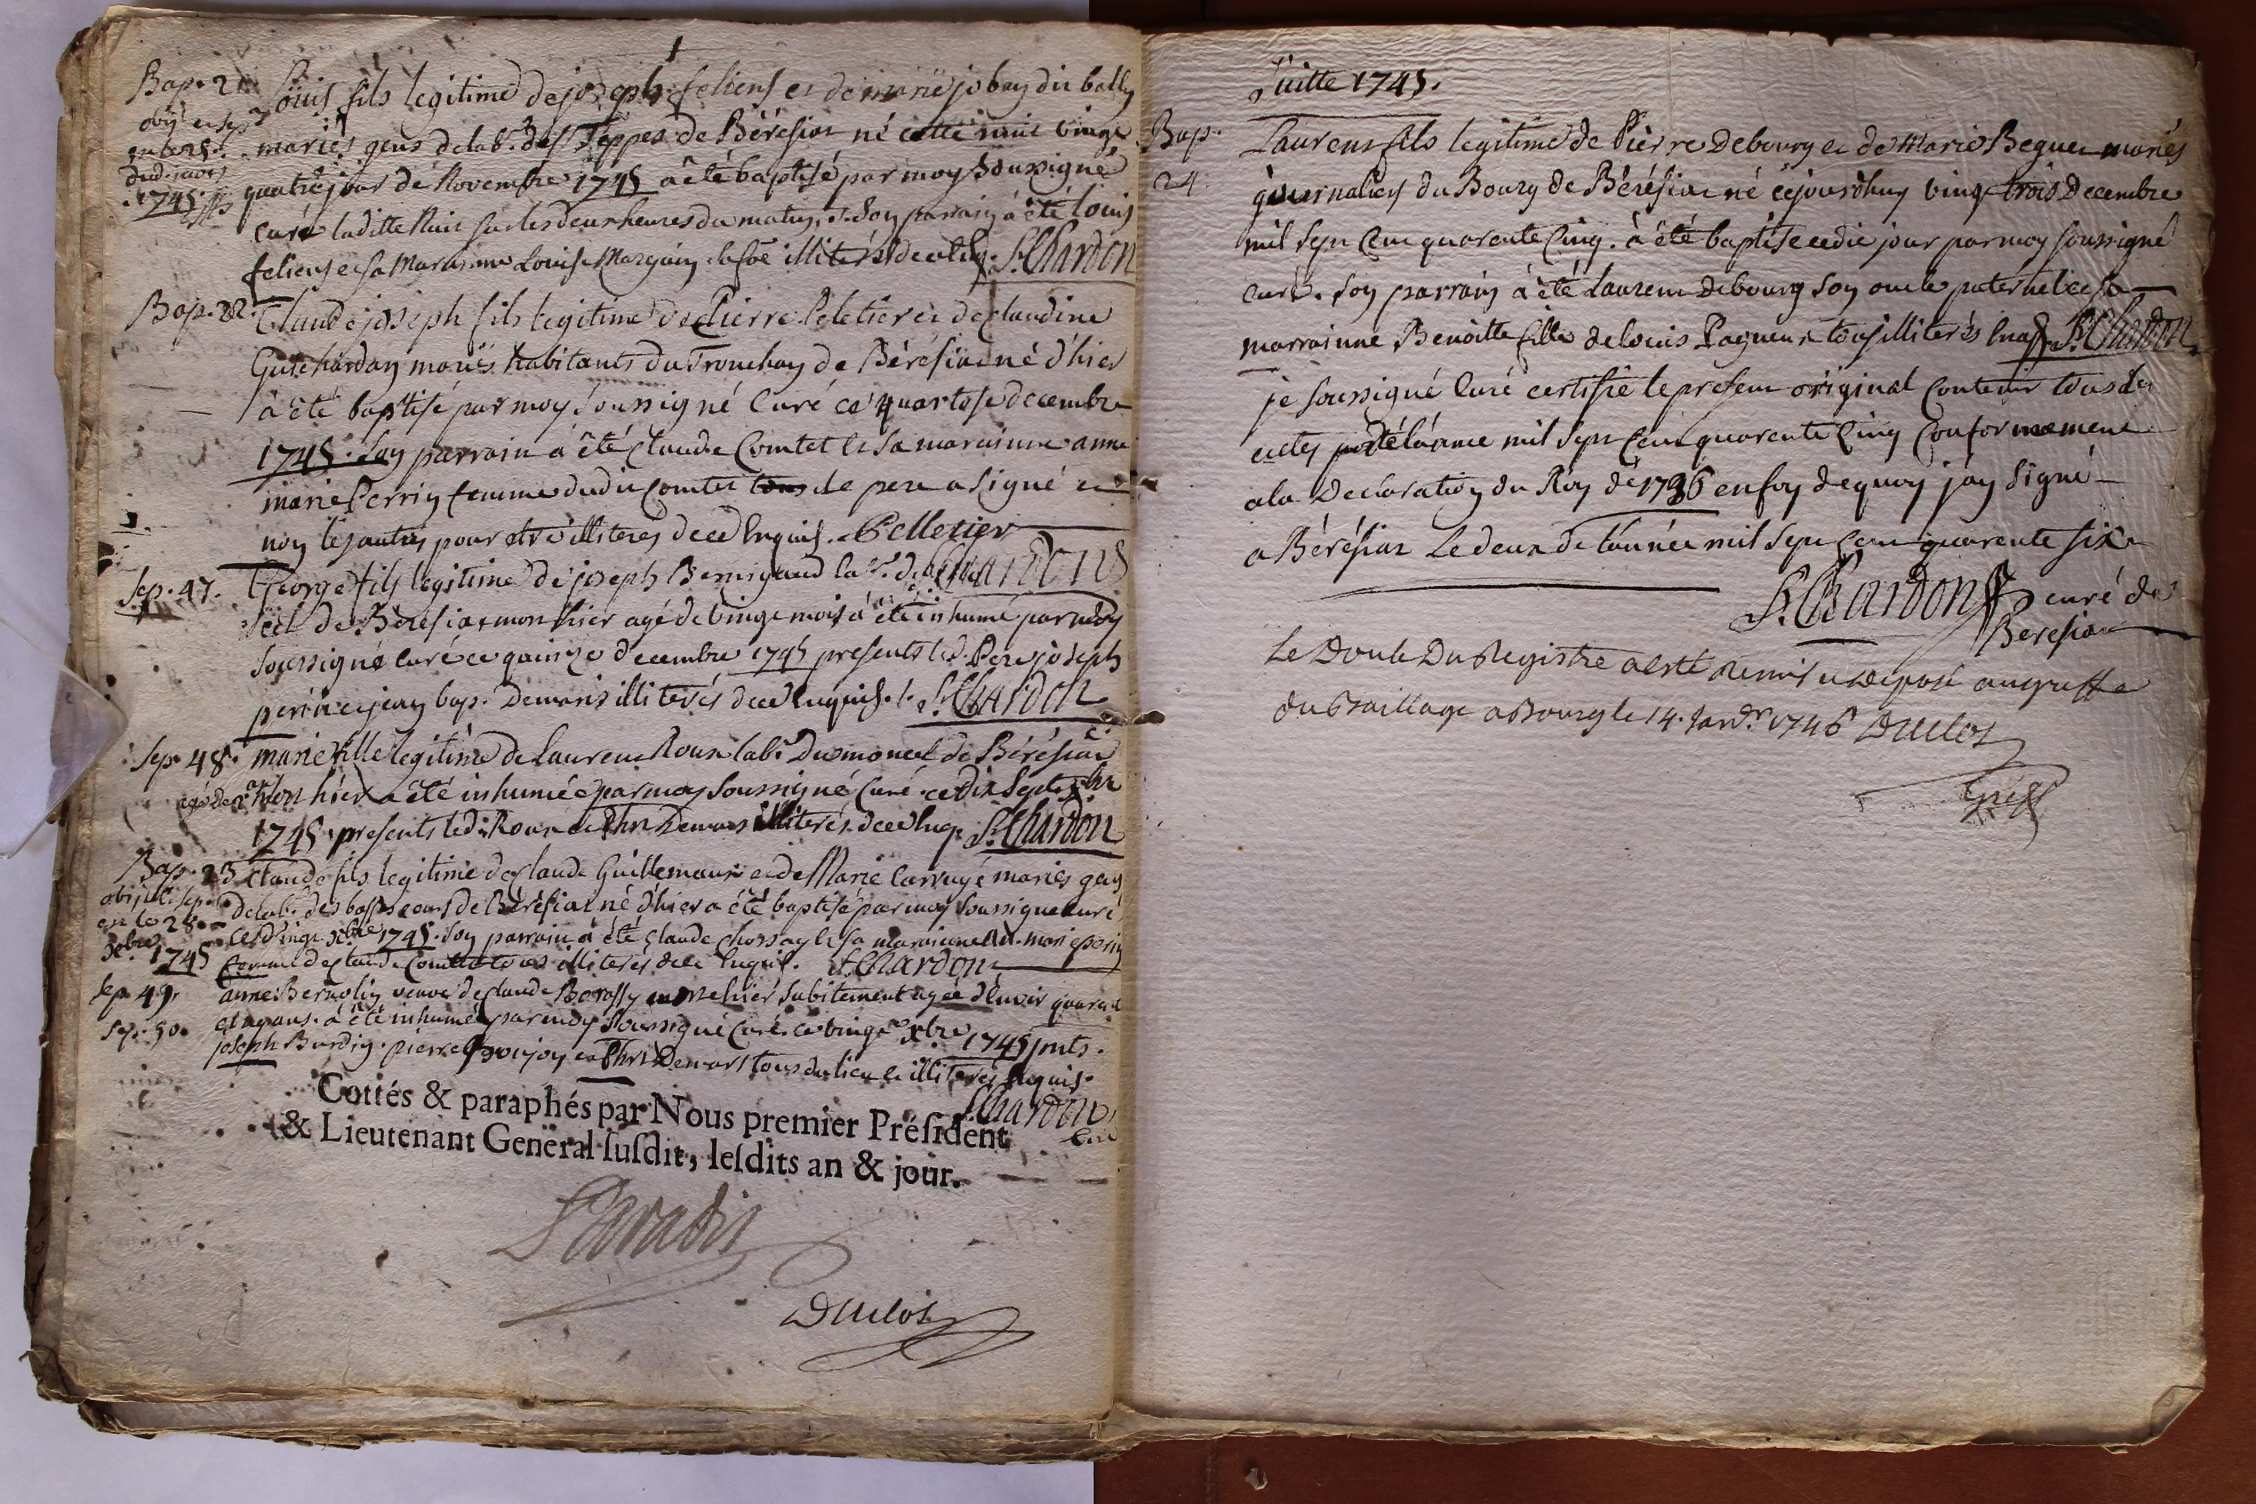 Bap. 21. Louis fils legitime de joseph feliens et de marie jobay du bally
obijt et sep.
mariés gens de lab. des Teppes de Bérésiat né cette nuit vingt
dud. mois
1745. quatre jour de Novembre 1745 à été baptisé par moy soussigné
curé laditte Nuit sur les deux heures du matin, Son parrain à été louis
feliens et sa Marainne Louise Mazuin illiterés de ce enq. S. Chardon
Bap. 22. Claude joseph fils legitime de Pierre Peletier et de claudine
Guichardan mariés habitants du Tronchay de Bérésiat né d'hier
à été baptisé par moy Soussigné Curé ce quatorse decembre
1745. Son parrain à été Claude Comtet et sa marainne anne
marie Perrin femme dudit Comtet le pere a signé et
non les autres pour etre illiteres de ce Enquis. Pelletier
S. Chardon
Sep. 47. George fils legitime de joseph Benigaud lab.
de Bérésiat mort hier agé de vingt mois à été inhumé par moy
Soussigné Curé ce quinze decembre 1745 presents led. Pere joseph
perin et jean bap. Demaris illiterés de ce enquis. S. Chardon
Sep. 48. marie fille legitime de Laurent Roux lab. du moncel de Bérésiat
agée de mort hier à été inhumée par moy Soussigné Curé ce dix Sept xbre
1745 presents led. Roux et Phrt Demaris illiterés de ce enq. S. Chardon
Bap. 23 Claude fils legitime de Claude Guillemaux et de Marie Carruge mariés gens
obijt et sep.
en le 28 de lab. des basses cours de Bérésiat né d'hier a été baptisé par moy Soussigné curé
xbre 1745 ce vingt xbre 1745. Son parrain à été Claude Chossat et sa marainne marie perin
femme de Claude Comtet tous illiteres de ce Enquis. S. Chardon
Sep. 49. anne Bernolin veuve de Claude Borossy morte hier subitement agée d'Envir. quarente
Sep. 50. et ans. à été inhumée par moy Soussigné Curé ce vingt xbre 1745 pnts.
joseph Burdin. pierre Goujon et Phrt Demaris tous du lieu et illiterés Enquis.
S. Chardon
Curé
Cottés & paraphés par Nous premier Président
& Lieutenant General susdit, lesdits an & jour.
Paradis
Duclos
Suitte 1745.
Bap. Laurent fils legitime de Pierre Debourg et de Marie Beguet mariés
24. journaliers du Bourg de Bérésiat né cejourdhuy vingt trois Decembre
mil sept cent quarente Cinq. à été baptisé cedit jour par moy soussigné
curé. son parrain à été Laurent Debourg son oncle paternel et sa
marrainne Benoitte fille de Louis Pagneux tous illiterés Enq. S. Chardon
je soussigné Curé certifie le present original Contenir tous les
actes de l'année mil sept Cent quarente Cinq Conformement
a la Declaration du Roy de 1736 en foy dequoy jay Signé
a Bérésiat Le deux de l'année mil sept Cent quarente Six
S. Chardon curé de
Beresiat
Le Double Du Registre a esté Remis et deposé au greffe
du Bailliage a Bourg le 14. Janvr. 1746 Duclos
Greff